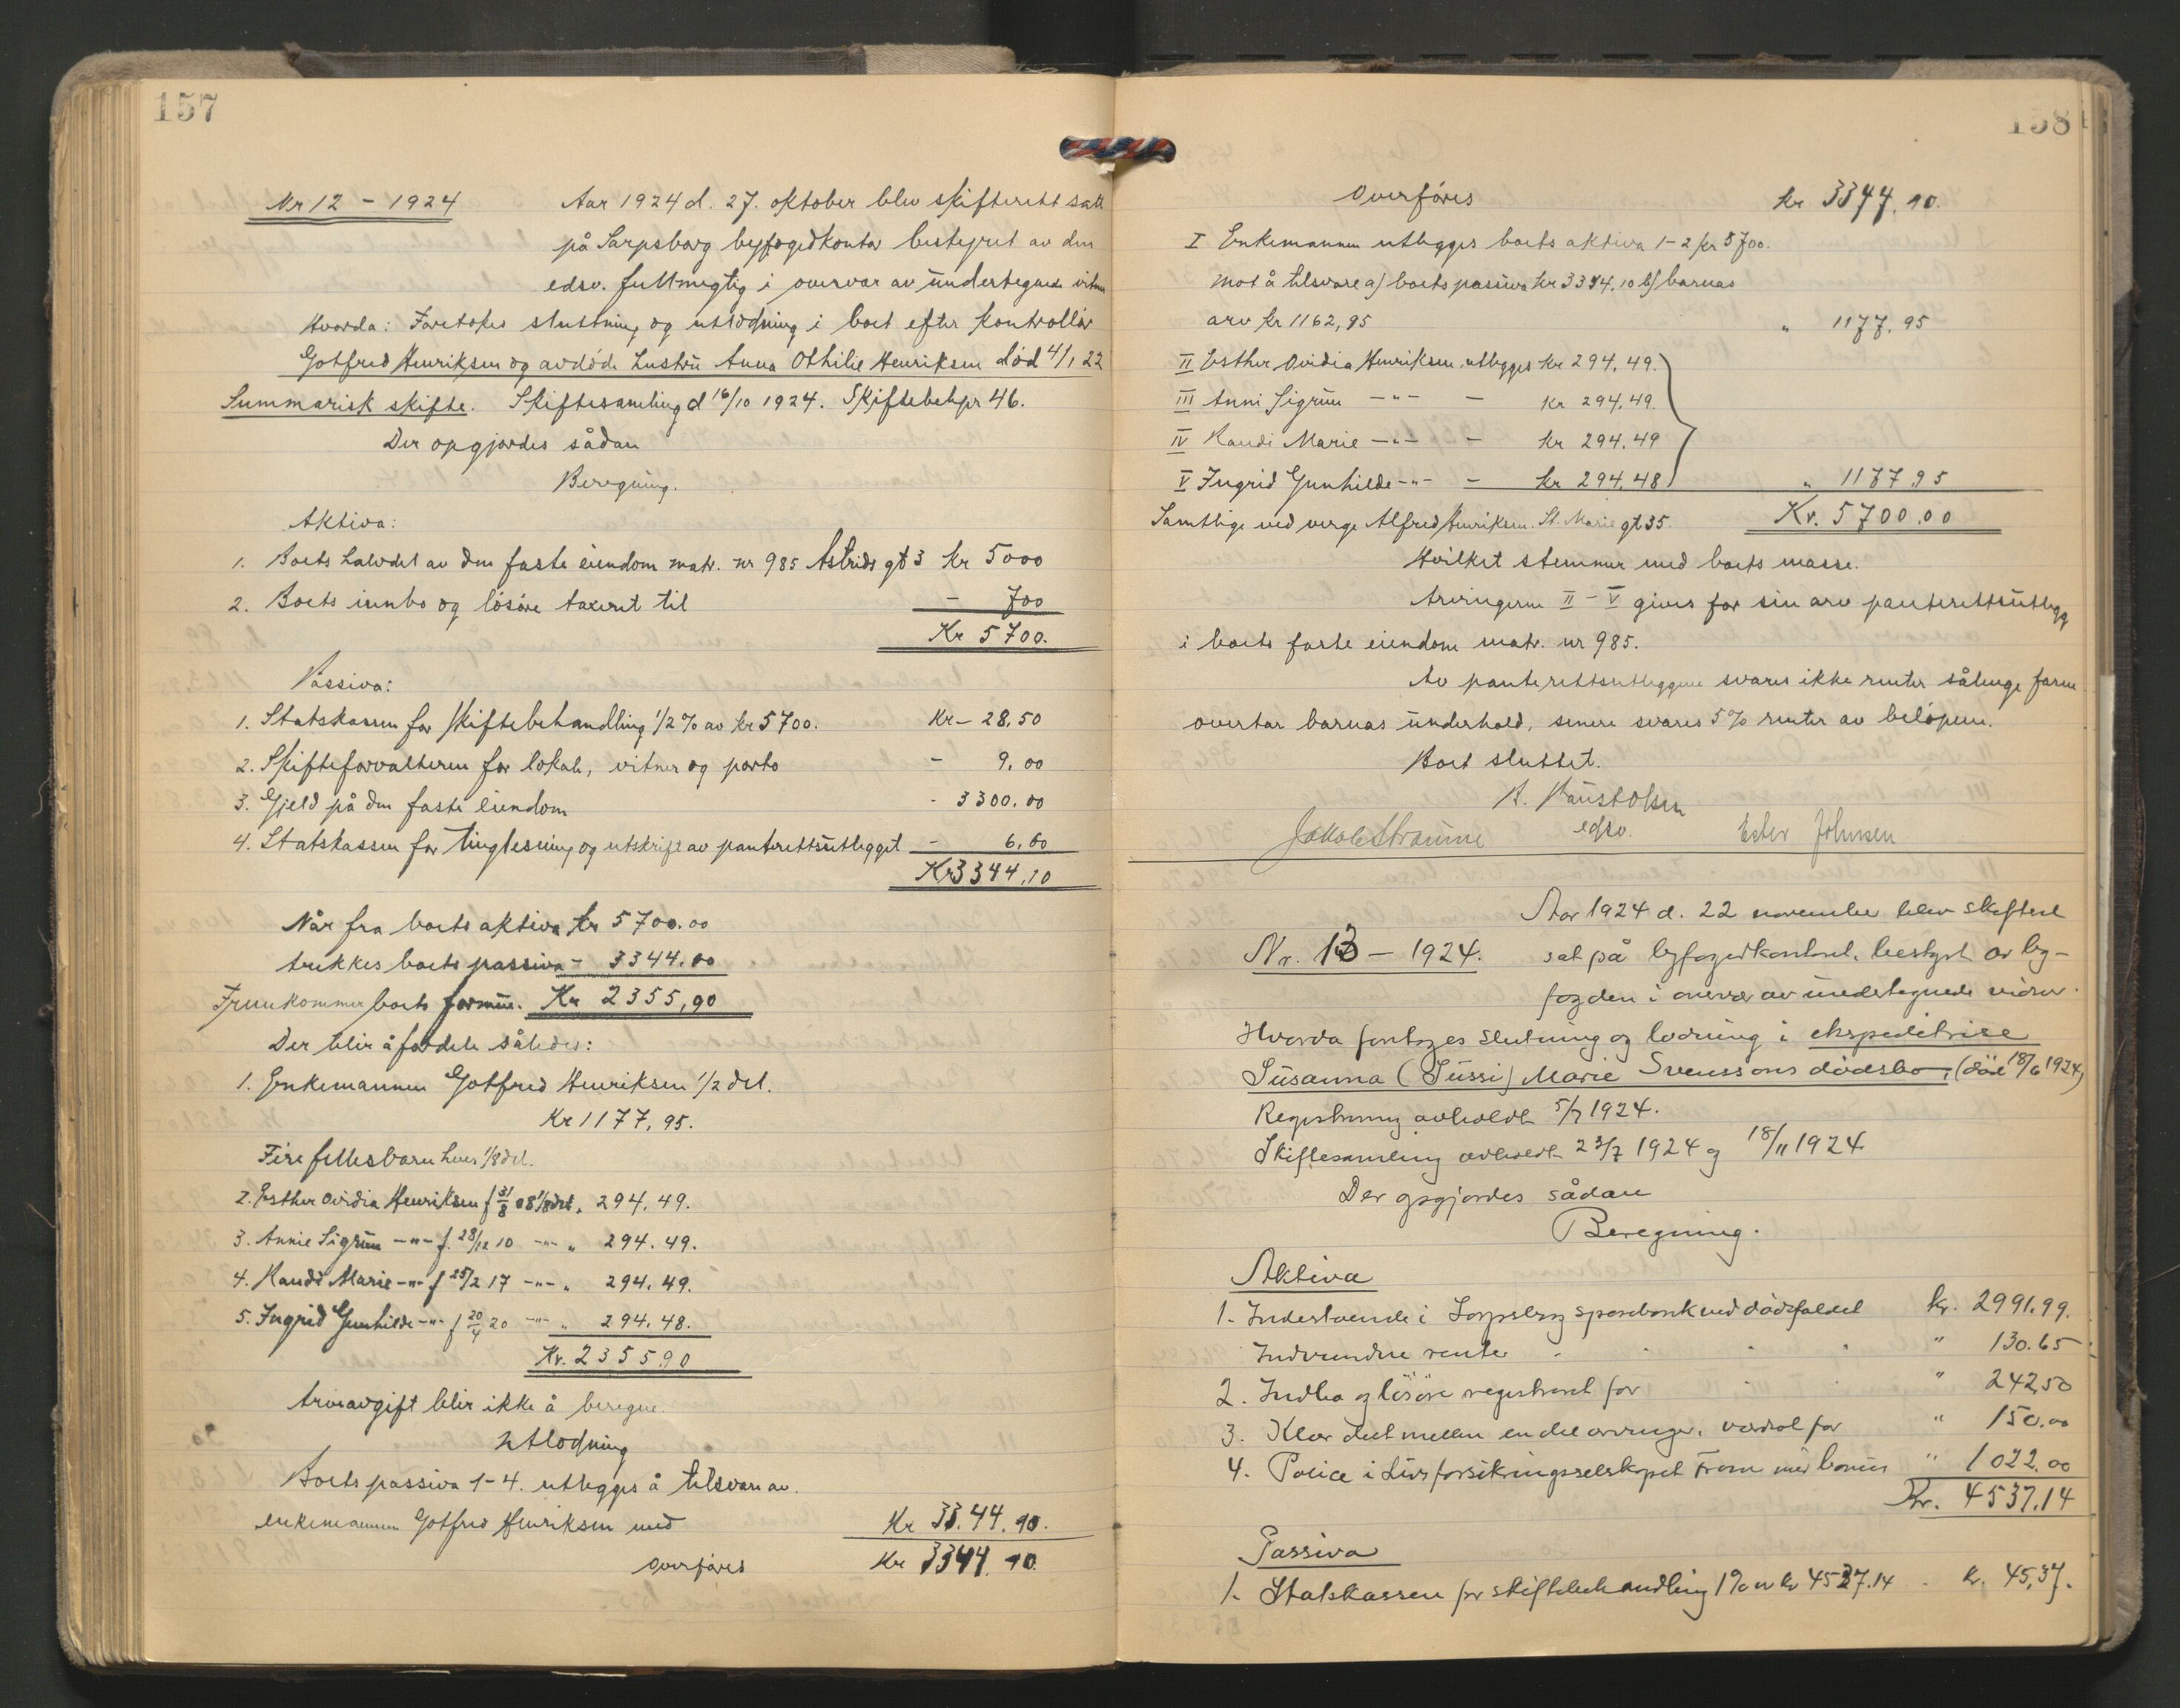 157
Nr 12 - 1924 Aar 1924 d. 27. oktober blev skifterett satt
på Sarpsborg byfogedkontor bestyret av den
edsv. fullmegtig i overvær av undertegnede vitner
Hvorda: Foretokes sluttning og utlodning i boet efter kontrollør
Gotfred Henriksen og avdöde hustru Anna Othilie Henriksen död 4/1 22
Summarisk skifte. Skiftesamling d 16/10 1924. Skiftebehpr 46.
Der opgjordes sådan
Beregning.
Aktiva:
1. Boets halvdel av den faste eiendom matr. nr 985 Astrids gt 3 Kr 5000
2. Boets innbo og lösöre taxert til - 700
Kr 5700.
Passiva:
1. Statskassen for skiftebehandling 1/2 % av kr 5700. Kr - 28.50
2. Skifteforvalteren for lokale, vitner og porto - 9.00
3. Gjeld på den faste eiendom - 3300.00
4. Statskassen for tinglesning og utskrift av panterettsutlegget - 6.60
Kr 3344.10
Når fra boets aktiva kr 5700.00
trekkes boets passiva - 3344.00
Fremkommer boets formue. Kr 2355,90
Der blir å fordele således:
1. Enkemannen Gotfred Henriksen 1/2 del.
Kr 1177,95.
Fire fellesbarn hver 1/8 del.
2. Esther Ovidia Henriksen f 31/8 08 1/8 del „ 294.49.
3. Annie Sigrun -"- f. 28/12 10 -"- „ 294.49.
4. Randi Marie -"- f 25/2 17 -"- „ 294.49.
5. Ingrid Gunhilde -"- f 20/4 20 -"- „ 294.48.
Kr. 2355.90
Arveavgift blir ikke å beregne.
Utlodning
Boets passiva 1-4. utlegges å tilsvare av
enkemannen Gotfred Henriksen med Kr 3344.10.
overføres Kr 3344.10.
158
Overføres Kr 3344.10.
I Enkemannen utlegges boets aktiva 1-2 kr 5700.
mot å tilsvare a) boets passiva kr 3344.10 b) barnas
arv kr 1162,95 „ 1177.95
II Esther Ovidia Henriksen utlegges Kr 294.49.
III Anni Sigrun -"- - Kr 294.49.
IV Randi Marie -"- - Kr 294.49
V Ingrid Gunhilde -"- - Kr 294.48 „ 1177.95
Samtlige ved verge Alfred Henriksen St. Marie gt 35. Kr. 5700.00
Hvilket stemmer med boets masse.
Arvingerne II - V gives for sin arv panterettsutlegg
i boets faste eiendom matr. nr 985.
Av panterettsutleggene svares ikke renter sålenge faren
overtar barnas underhold, senere svares 5% renter av belöpene.
Boet sluttet.
edsv.
Ester Johnsen
Aar 1924 d. 22 november blev skifteret
Nr. 13 - 1924. sat på byfogedkontoret, bestyret av by-
fogden i overvær av undertegnede vidner.
Hvorda foretoges slutning og lodning i ekspeditrise
Susanna (Sussi) Marie Svenssons dødsbo, (död 18/6 1924)
Registrering avholdt 5/7 1924.
Skiftesamling avholdt 23/7 1924 og 18/11 1924
Der opgjordes sådan
Beregning.
Aktiva
1. Indestaaende i Sarpsborg sparebank ved dödsfaldet kr. 2991.99.
Indvundne renter " 130.65
2. Indbo og lösöre registreret for " 242,50
3. Klær delt mellem en del arvinger, værdsat for " 150.00
4. Police i Livsforsikringsselskapet Fram med bonus " 1022.00
Kr. 4537.14
Passiva
1. Statskassen for skiftebehandling 1% av kr 4537.14 kr. 45,37.